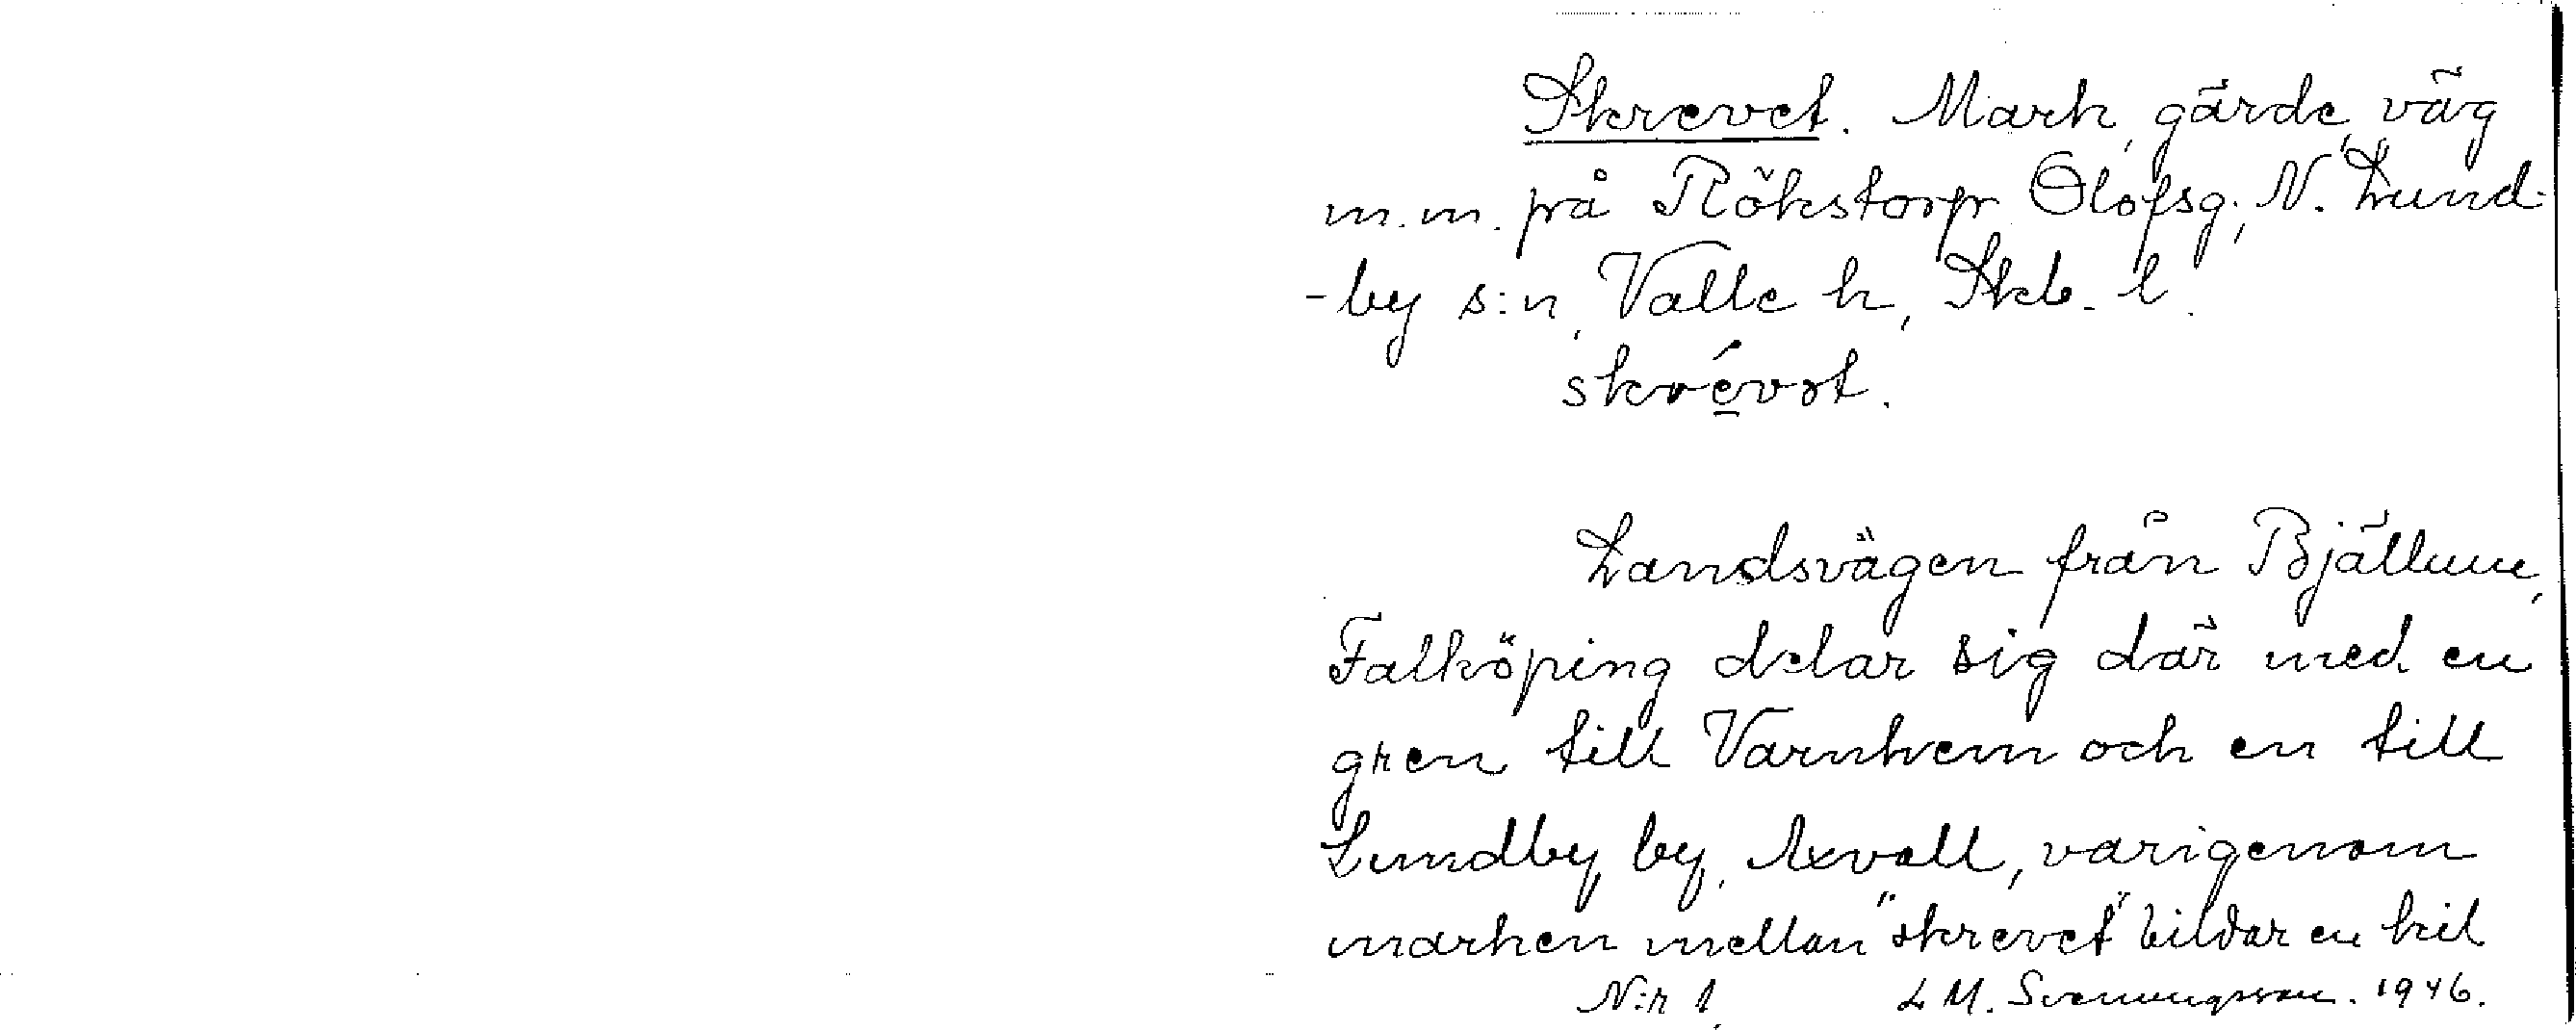 Skrevet. Mark, gärde, väg
m.m. på Rökstorp Olofsg., N. Lund-
-by s:n, Valle h, Skb. l.
skrévət.
Landsvägen från Bjällum,
Falköping delar sig där med en
gren till Varnhem och en till
Lundby by, Axvall, varigenom
marken mellan "skrevet" bildar en kil
N:r 1. L M. Svenungsson. 1946.